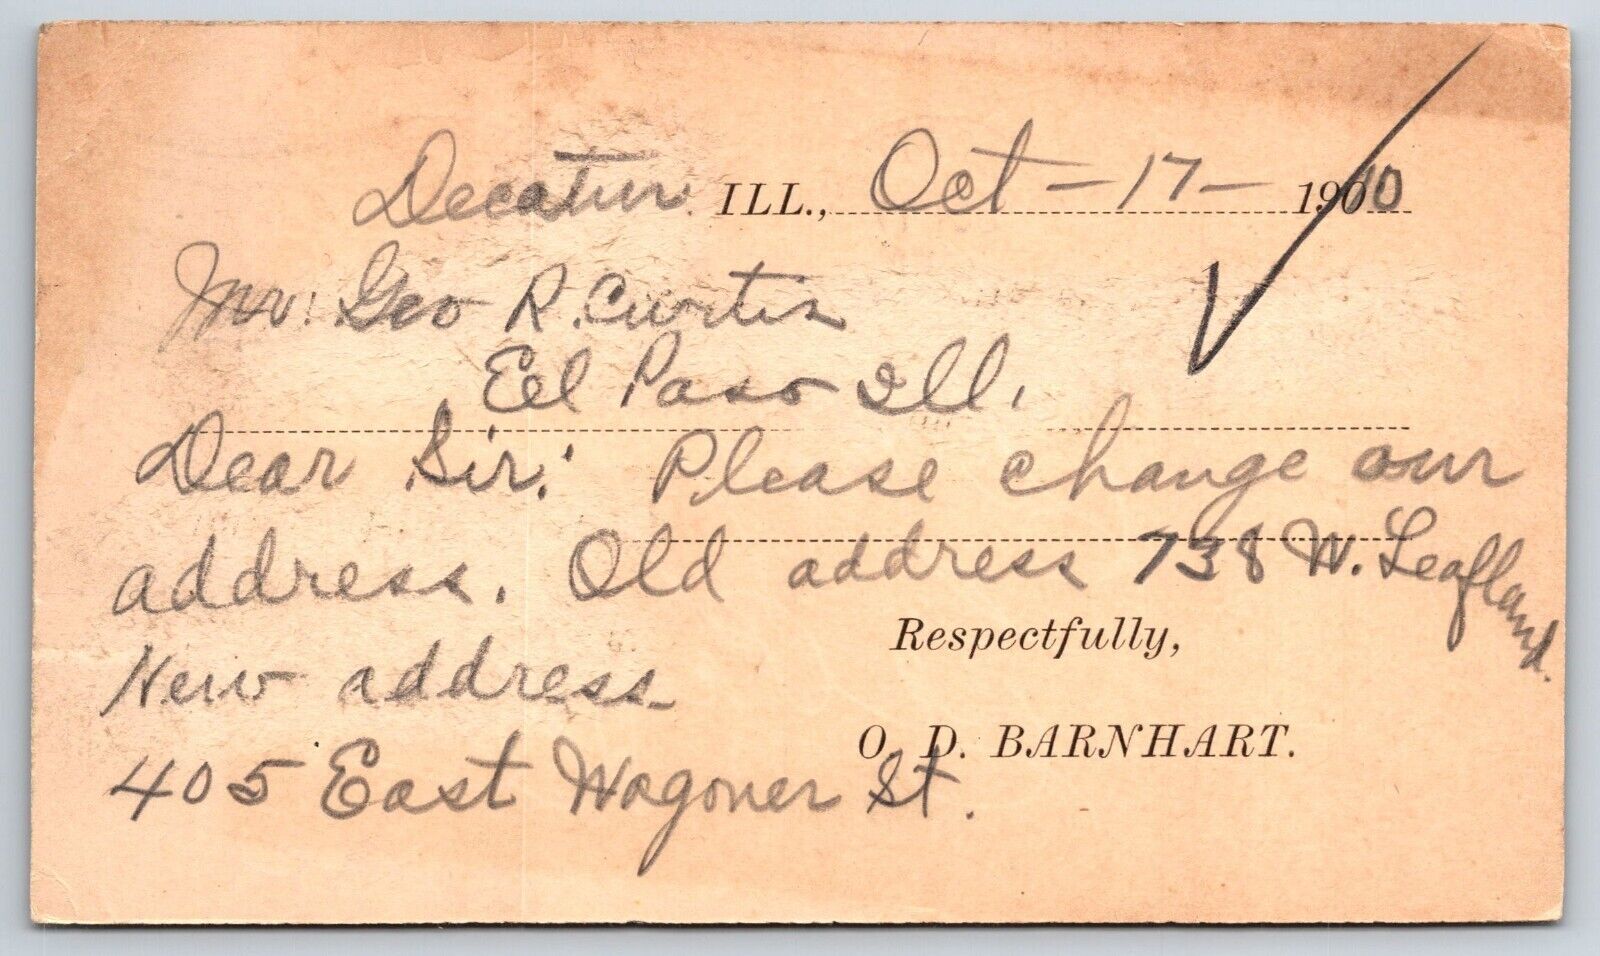 Decatur. ILL., Oct-17-1910
Mr. Geo R. Curtis
Eel Paso Ill.
Dear Sir! Please change our
address. Old address 738 W. Leafland.
Respectfully,
New address
O. D. BARNHART.
405 East Wagoner St.